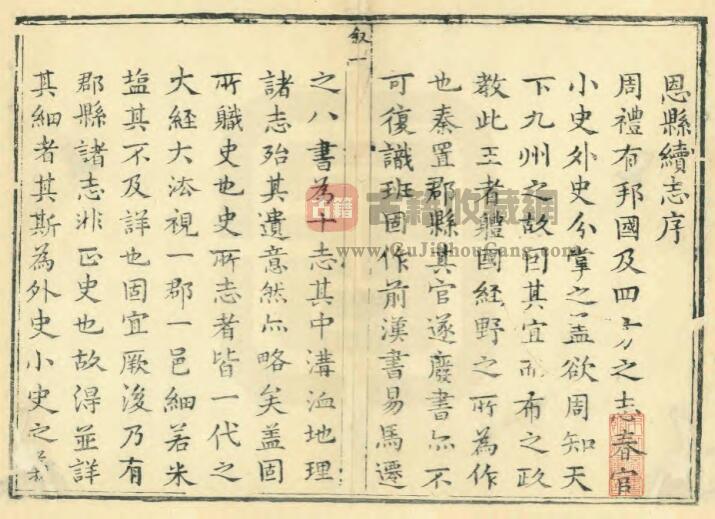 恩縣續志序
周禮有邦國及四方之志春官
小史外史分掌之盖欲周知天
下九州之故因其宜而布之政
教此王者體國経野之所為作
也秦置郡縣其官遂廢書亦不
可復識班固作前漢書易馬遷
叙一
之八書為十志其中溝洫地理
諸志殆其遺意然亦略矣盖固
所軄史也史所志者皆一代之
大经大法視一郡一邑細若米
塩其不及詳也固宜厥後乃有
郡縣諸志非正史也故得並詳
其細者其斯為外史小史之
古籍 古籍收藏網
www.GuJiShouCang.com